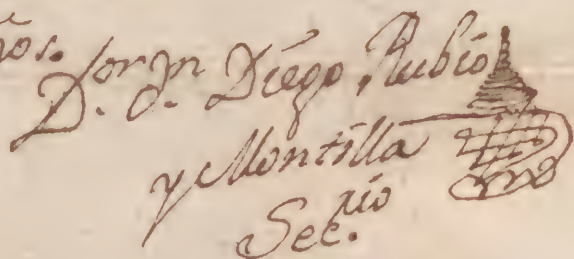 ños.
D.ʳ D.ⁿ Diego Rubio
y Montilla
Sec.ʳⁱᵒ